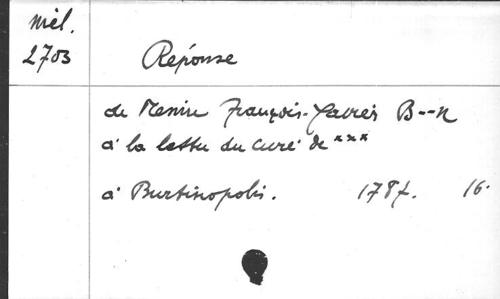 Mél.
2703
Réponse
de Messire François-Xavier B--n
à la lettre du curé de ***
à Burtinopolis. 1787. 16.